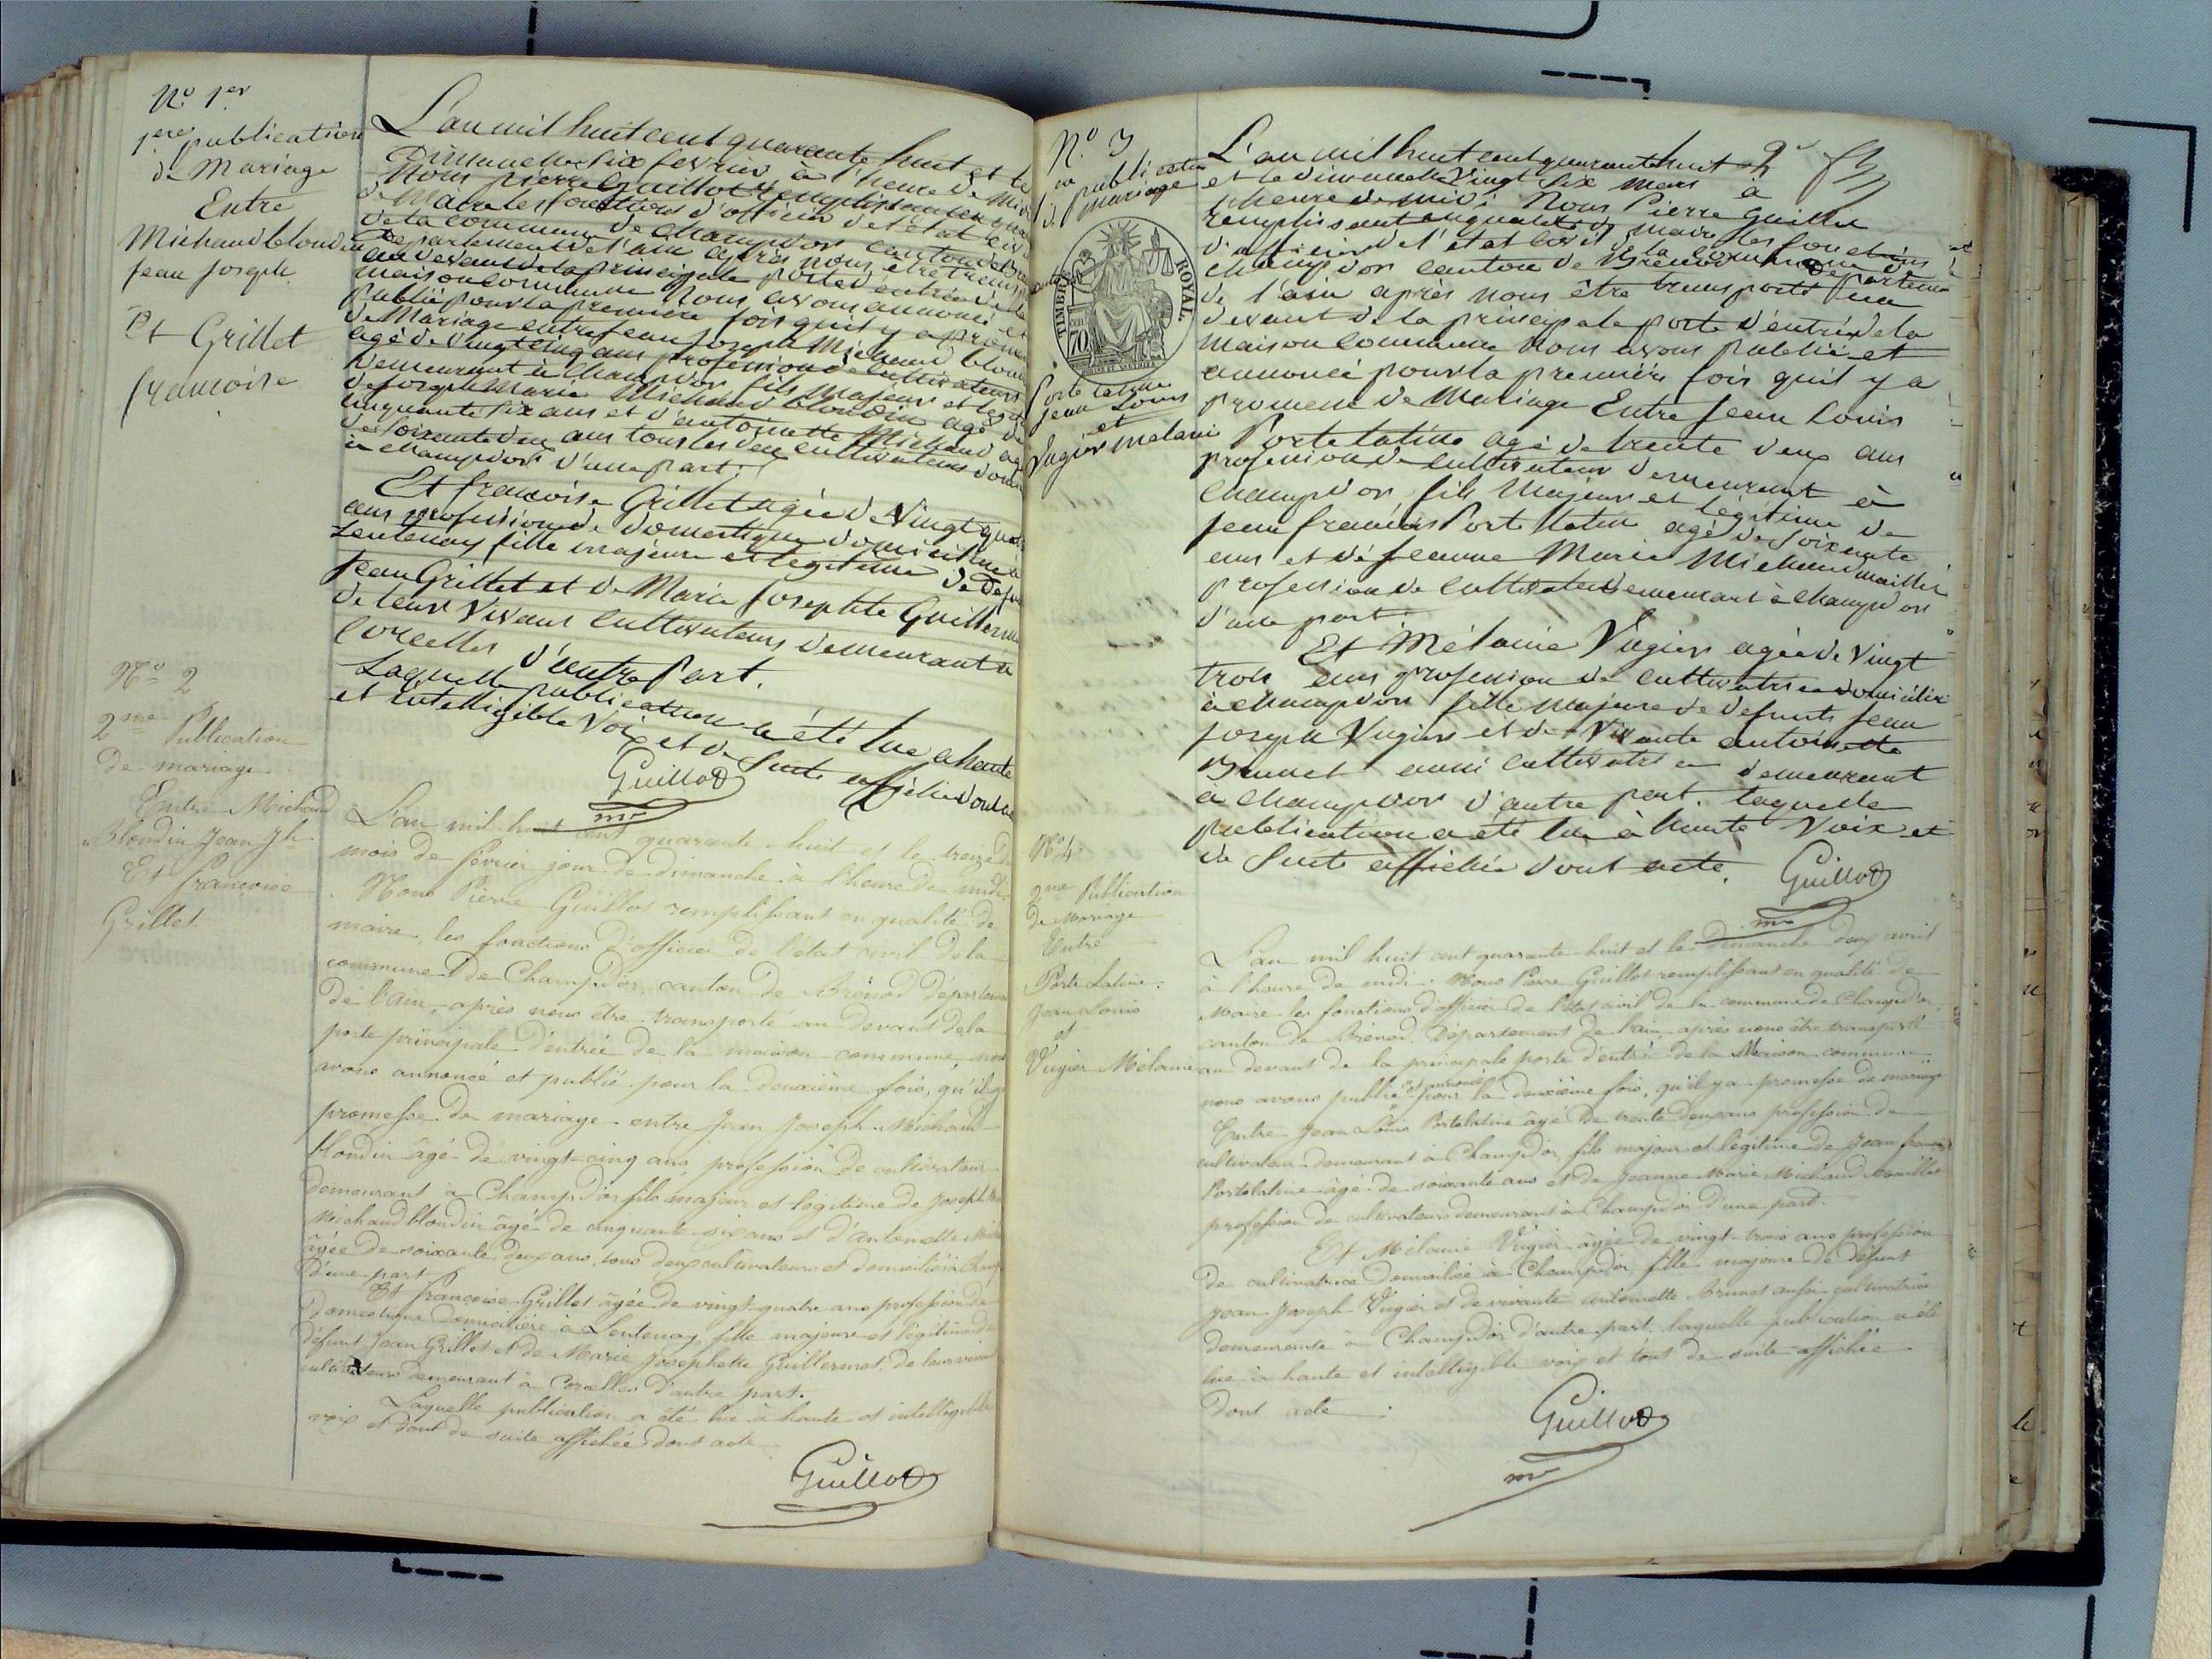 N.o 1er
1ere publication
de Mariage
Entre
Michaud blondin
jean joseph
Et Grillet
francoise
L'an mil huit cent quarante huit et le
Dimanche six fevrier, à l'heure de midi
Nous pierre Guillot remplissant en qua
de Maire les fonctions d'officier de l'état civil
de la commune de champdor canton de Bre
Departement de l'ain après nous être transp
au devant de la principale porte d'entrée de la
maison commune Nous avons annoncé et
publié pour la premiere fois qu'il y a prome
de Mariage entre jean joseph Michaud blon
agé de vingt cinq ans profession de cultivateur
Demeurant à champdor fils majeur et legi
de joseph Marie Michaud blondin agé de
cinquante six ans et d'antoinette Michaud ag
de soixante deux ans tous les deux cultivateurs dom
à champdor d'une part.
Et francoise Grillet agée de vingt quatr
ans profession de domestique domiciliée à
Lentenay fille majeure et legitime de Defu
jean Grillet et de Marie josephte Guillerm
de leur vivant cultivateurs demeurant à
Corcelles d'autre part.
Laquelle publication a été lue a haute
et intelligible voix et de suite affichée dont a
Guillot
mre
No 2
2me Publication
De mariage
Entre Michaud
Blondin Jean Jh
Et françoise
Grillet
L'an mil huit cent quarante-huit et le treize d
mois de février jour de dimanche à l'heure de midi
Nous Pierre Guillot remplissant en qualité de
maire, les fonctions d'officier de l'état civil de la
commune de Champdor, canton de Brénod Départem
de l'ain, après nous être transporté au devant de la
porte principale d'entrée de la maison commune, nous
avons annoncé et publié pour la deuxième fois, qu'il y
promesse de mariage entre Jean Joseph Michaud
blondin âgé de vingt-cinq ans, profession de cultivateur
demeurant à Champdor fils majeur et légitime de Joseph
Michaud blondin âgé de cinquante-six ans et d'antoinette
âgée de soixante deux ans, tous deux cultivateurs et domiciliés à Champ
d'une part
Et françoise Grillet âgée de vingt-quatre ans profession de
Domestique Domiciliée à Lentenay, fille majeure et légitime de
défunt Jean Grillet et de Marie Josephette Guillermet, de leur vivant
cultivateurs demeurant à Corcelles d'autre part.
Laquelle publication a été lue à haute et intelligible
voix et tout de suite affichée dont acte
Guillot
N.o 3
publication
de mariage
entre
TIMBRE ROYAL.
70
Porte latine
jean Louis
et
Vugier Melanie
L'an mil huit cent quarante huit
et le dimanche Vingt six Mars à
l'heure de midi Nous Pierre Guillot
remplissant en qualité de maire les fonctions
d'officier de l'état civil de la commune de
champdor canton de Brenod Departement
de l'ain après nous être transporté au
devant de la principale porte d'entrée de la
maison commune Nous avons publié et
annoncé pour la première fois qu'il y a
promesse de Mariage Entre jean Louis
Porte latine agé de trente deux ans
profession de cultivateur demeurant à
champdor, fils majeur et légitime de
jean francois Porte latine agé de soixante
ans et de jeanne Marie Michaud maillet
profession de cultivateurs demeurant à champdor
d'une part
Et Mélanie Vugier agée de vingt
trois ans profession de cultivatrice domiciliée
à champdor fille majeure de defunt jean
joseph Vugier et de Vivante antoinette
Brunet aussi cultivatrice demeurant
à champdor d'autre part. laquelle
publication a été lue à haute Voix et
de suite affichée dont acte.
Guillot
mre
No 4.
2me Publication
de Mariage
Entre
Porte Latine
Jean Louis
et
Vugier Mélanie
L'an mil huit cent quarante-huit et le dimanche deux avril
à l'heure de midi. Nous Pierre Guillot remplissant en qualité de
Maire les fonctions d'officier de l'état civil de la commune de Champdor,
canton de Brénod, Département de l'ain, après nous être transporté
au devant de la principale porte d'entrée de la Maison commune
nous avons publié et annoncé pour la deuxième fois, qu'il y a promesse de mariage
Entre Jean Louis Portelatine âgé de trente deux ans profession de
cultivateur demeurant à Champdor, fils majeur et légitime de Jean francois
Portelatine âgé de soixante ans et de Jeanne Marie Michaud Maillet
profession de cultivateurs demeurant à Champdor d'une part.
Et Mélanie Vugier âgée de vingt-trois ans profession
de cultivatrice Domiciliée à Champdor, fille majeure de défunt
Jean Joseph Vugier et de vivante antoinette Brunet aussi cultivatrice
demeurante à Champdor d'autre part, laquelle publication a été
lue à haute et intelligible voix et tout de suite affichée.
Dont acte.
Guillot
mre